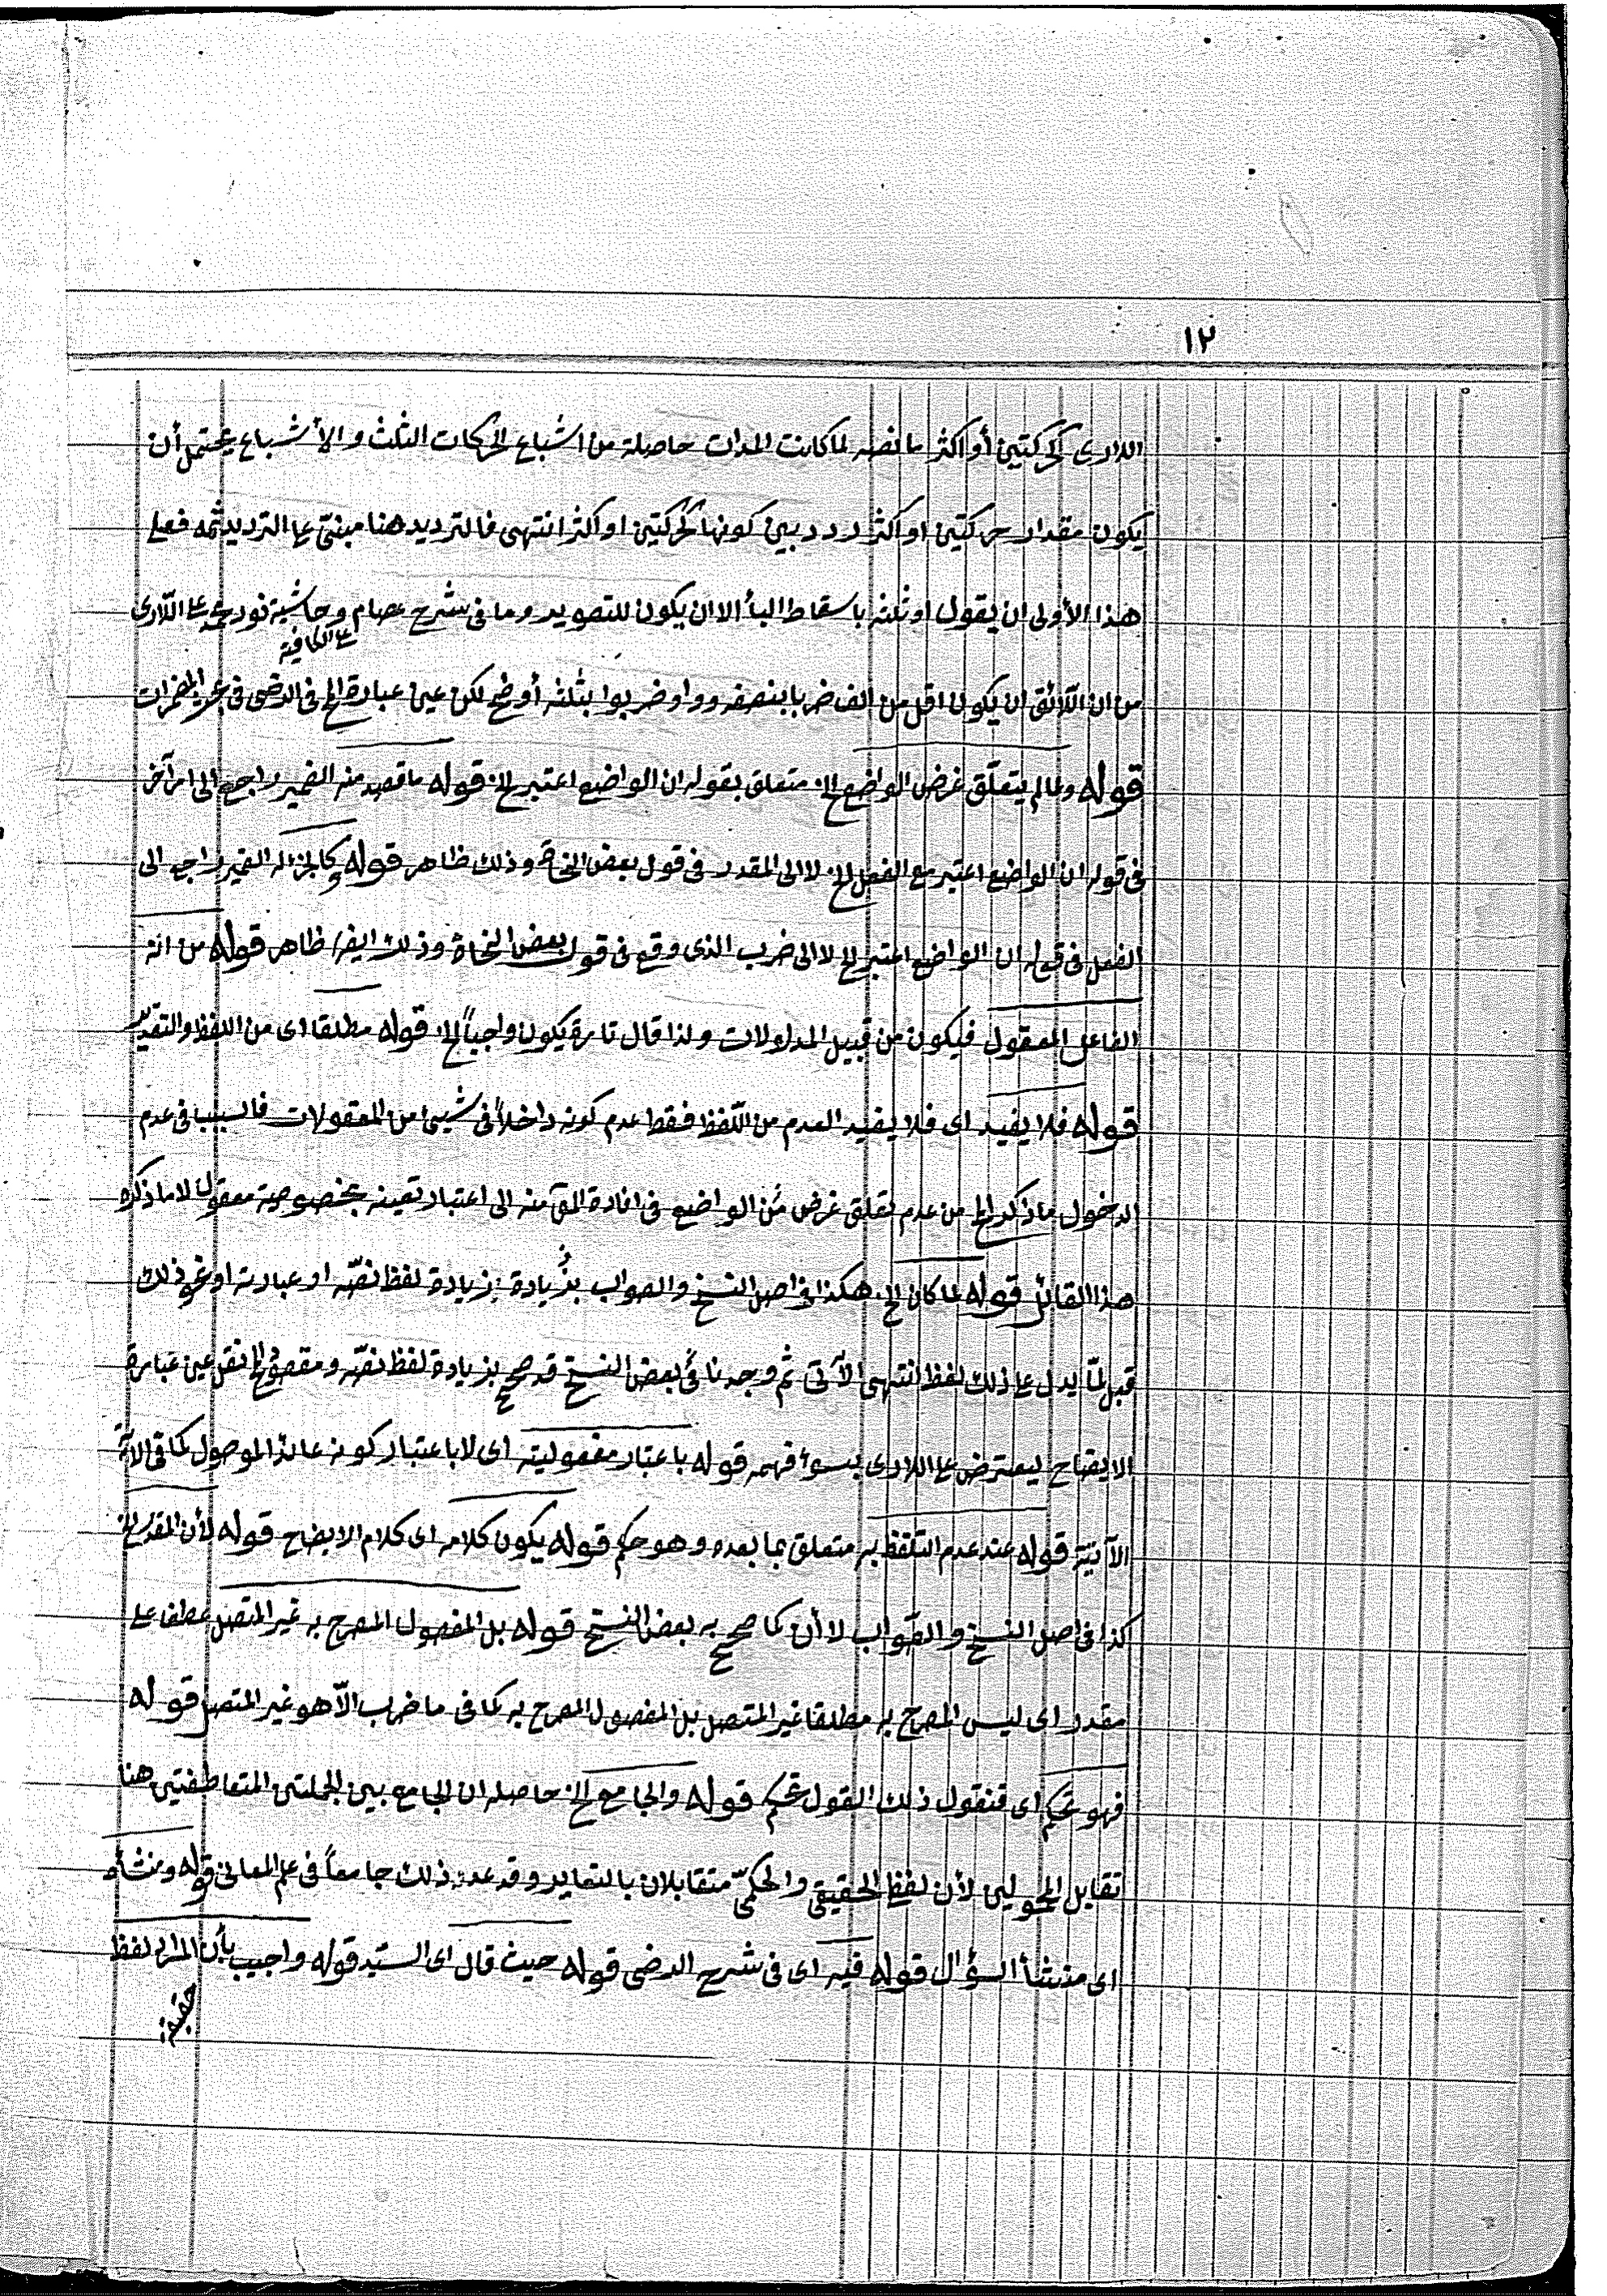 ١٢
اللاری كحركتين أو أكثر ما نصه لما كانت المدات حاصلة من اشباع الحركات الثلث و الأشباع يحتمل أن
يكون مقدار حركتين او اكثر ردد بين كونها كحركتين او اكثر انتهى فالترديد هنا مبنىّ على الترديد ثمه فعلى
هذا الأولى ان يقول او ثلثه باسقاط البأ الا ان يكون للتصوير وما فى شرح عصام وحاشية نور محمد على اللّاری
على الكافية
من ان اللّائق ان يكون اقل من الف ضربا بنصفه وواو ضربوا بثلثه أوضح لكن عين عبارة الخ فى الرضى فى بحث المضمرات
قوله ولما لم يتعلّق غرض الواضع الخ متعلق بقوله ان الواضع اعتبر الخ قوله ما قصد منه الضمير راجع الى امر آخر
فى قوله ان الواضع اعتبر مع الفعل الخ لا الى المقدر فى قول بعض النحاة وذلك ظاهر قوله كالجزء له الضمير راجع الى
الفعل فى قوله ان الواضع اعتبر الخ لا الى ضرب الذى وقع فى قول بعض النحاة وذلك ايضا ظاهر قوله من انه
الفاعل المعقول فيكون من قبيل المدلولات ولذا قال تارة يكون واجباً الخ قوله مطلقا اى من اللفظ والتقدير
قوله فلا يفيد اى فلا يفيد العدم من اللّفظ فقط عدم كونه داخلاً فى شيئ من المعقولات فالسبب فى عدم
الدخول ما ذكر الخ من عدم تعلق غرض من الواضع فى افادة المق منه الى اعتبار تعينه بخصوصية معقول لا ما ذكره
هذا القائل قوله لما كان الخ هكذا فى اصل النسخ والصواب بزيادة لفظ نصّه او عبارته او نحو ذلك
قبل لمّا يدل على ذلك لفظ انتهى الآتى ثم وجدنا فى بعض النسخ قد صحح بزيادة لفظ نصّه ومقصوده الخ نقل عين عبارة
الايضاح ليعترض على اللاری بسوأ فهمه قوله باعتبار مفعوليته اى لا باعتبار كونه عائد الموصول كما فى الآية
الآتيّة قوله عند عدم التلفظ به متعلق بما بعده وهو حكم قوله يكون كلامه اى كلام الايضاح قوله لأن المقدر الخ
كذا فى اصل النسخ والصّواب لا أن كما صحح به بعض النسخ قوله بل المفصول المصرح به غير المتصل عطف على
مقدر اى ليس المصرح به مطلقا غير المتصل بل المفصول المصرح به كما فى ما ضرب الّا هو غير المتصل قوله
فهو تحكم اى فنقول ذلك القول تحكم قوله والجامع الخ حاصله ان الجامع بين الجملتين المتعاطفتين هنا
تقابل المحمولين لأن لفظ الحقيقى والحكمىّ متقابلان بالتغاير وقد عد ذلك جامعاً فى علم المعانى قوله ومنشأه
اى منشأ السؤال قوله فيه اى فى شرح الرضى قوله حيث قال اى السيّد قوله واجيب بأن المراد لفظ
حقيقة